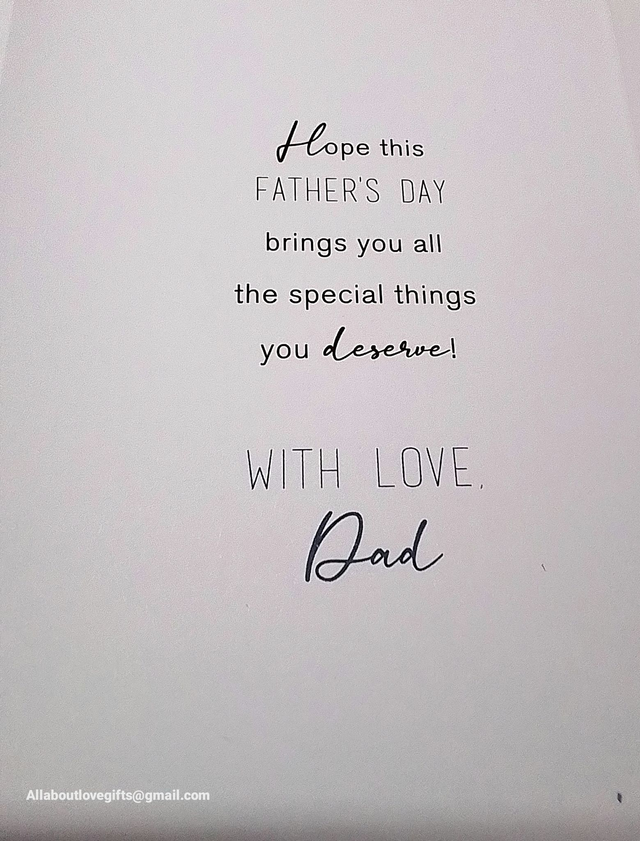 Hope this
FATHER'S DAY
brings you all
the special things
you deserve!
WITH LOVE,
Dad
Allaboutlovegifts@gmail.com